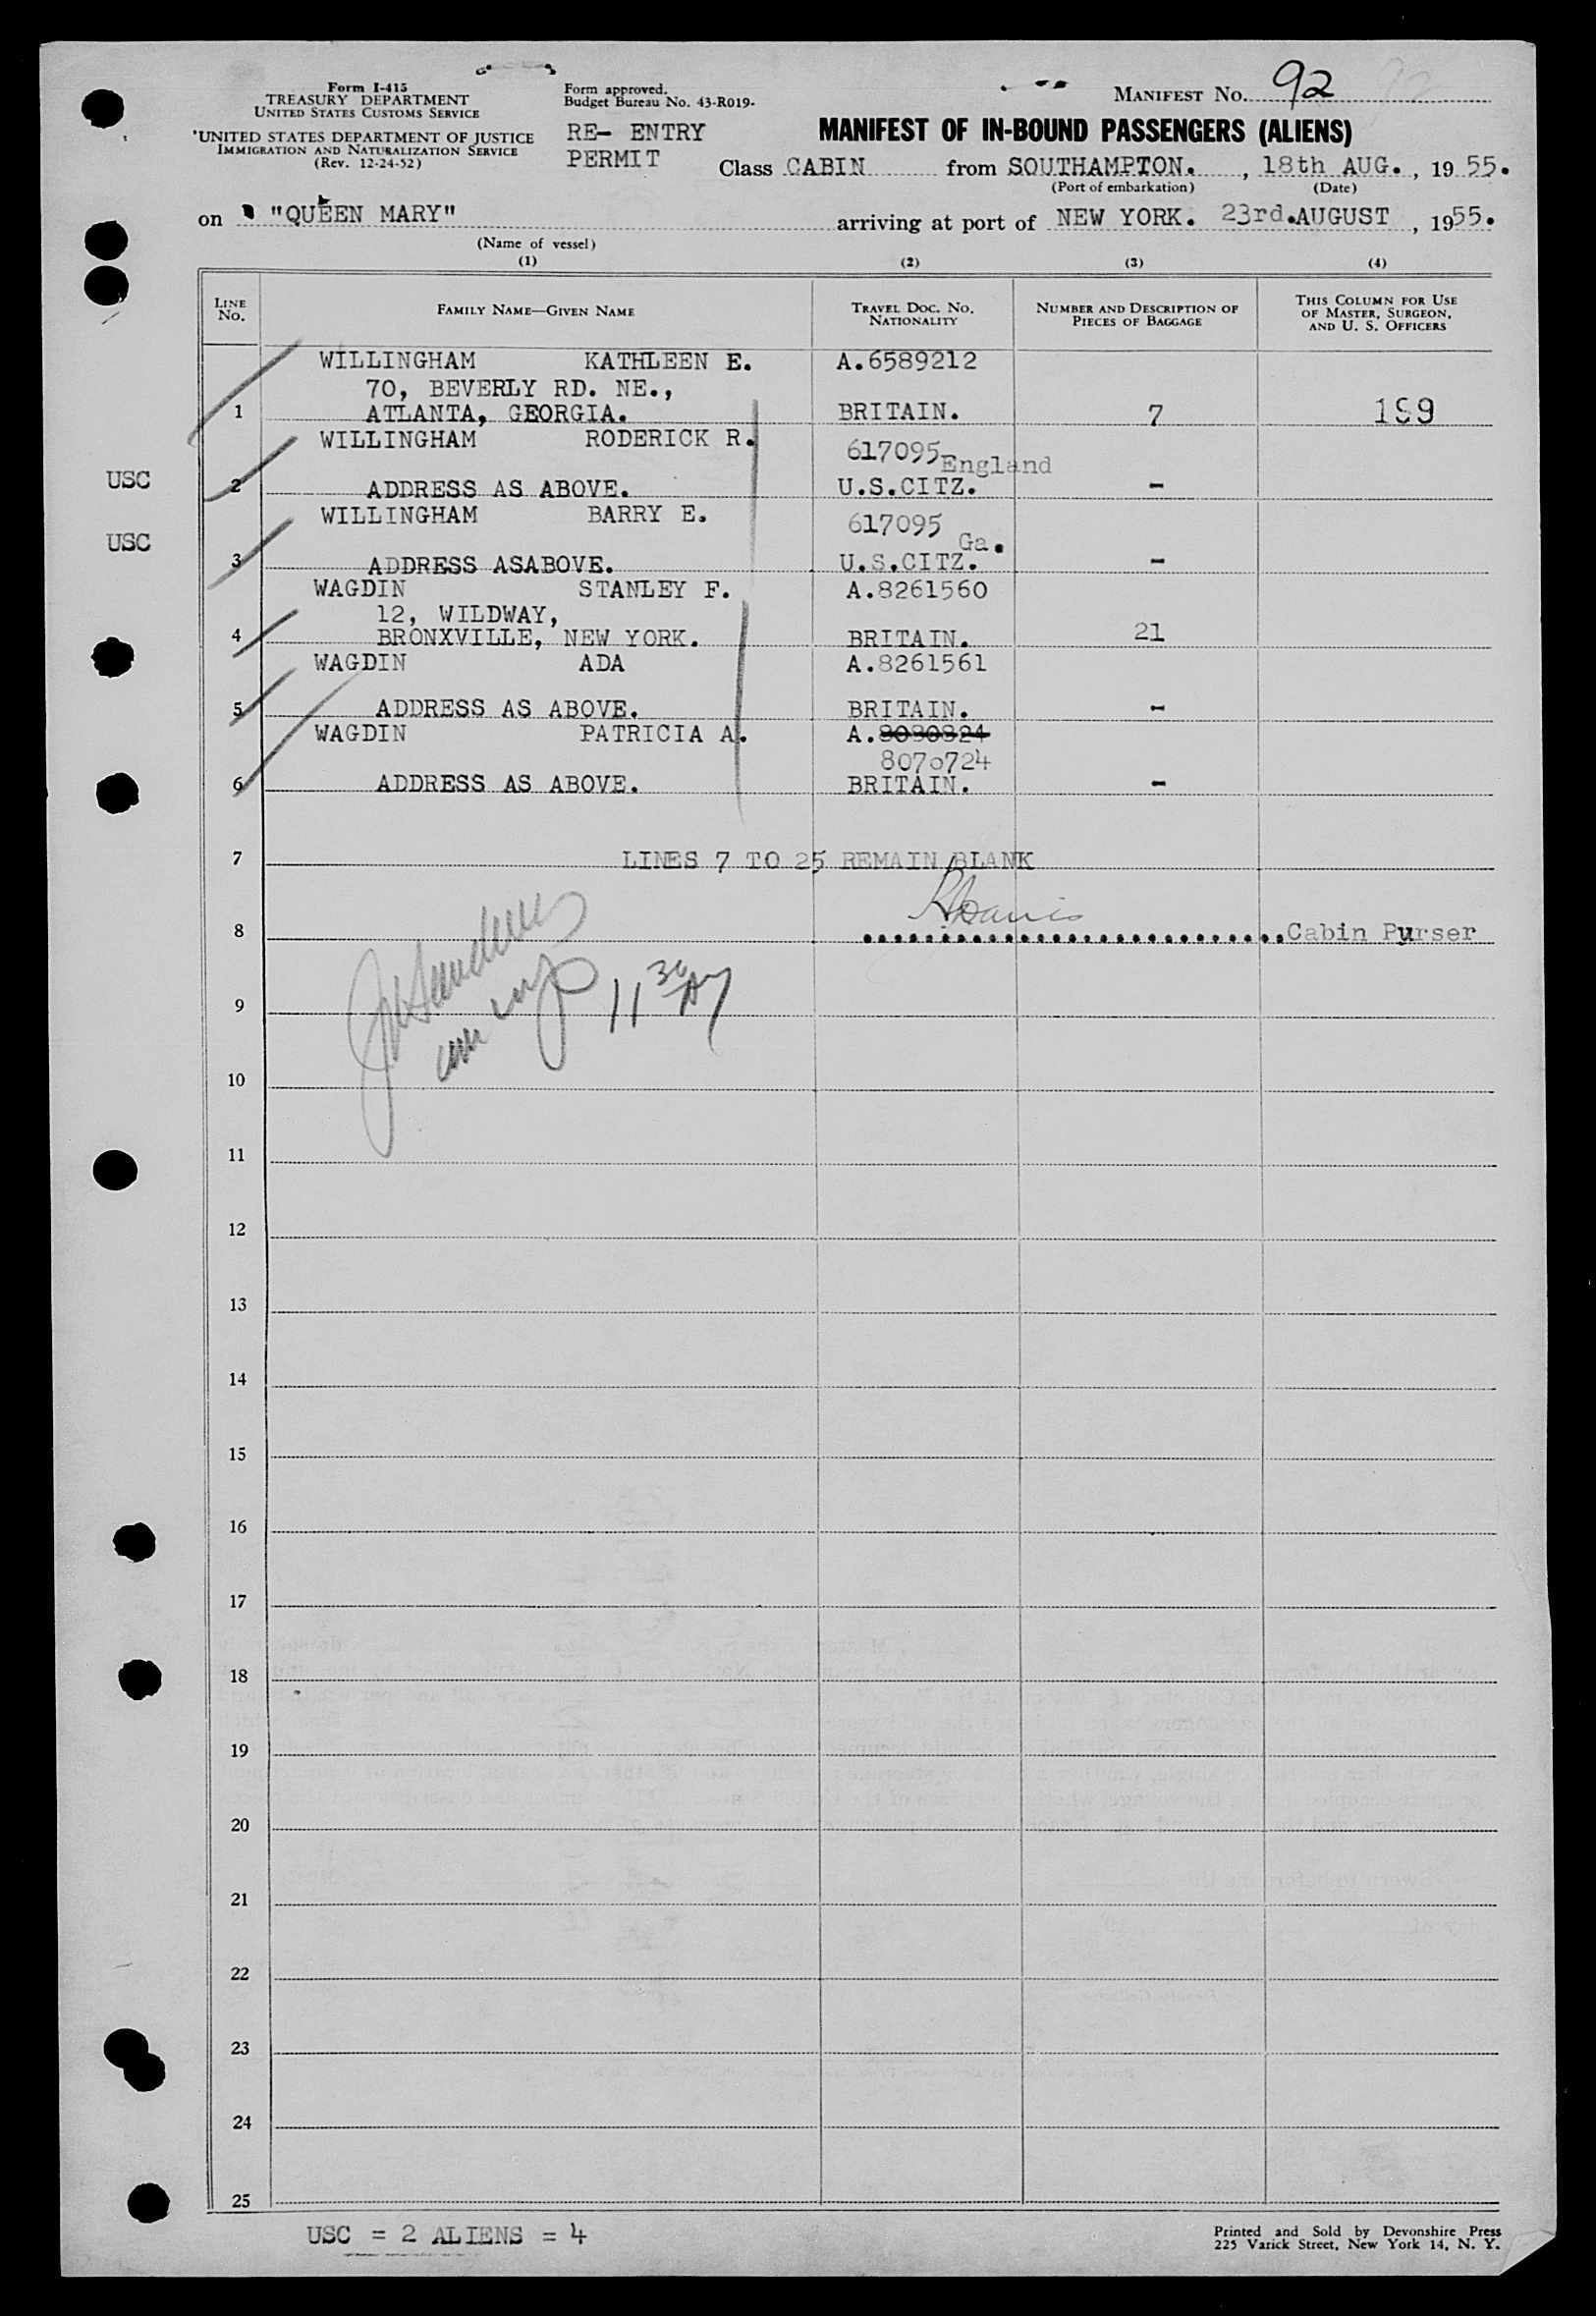 Form I-415
TREASURY DEPARTMENT
UNITED STATES CUSTOMS SERVICE
UNITED STATES DEPARTMENT OF JUSTICE
IMMIGRATION AND NATURALIZATION SERVICE
(Rev. 12-24-52)
Form approved.
Budget Bureau No. 43-R019-
RE- ENTRY
PERMIT
MANIFEST NO. 92
MANIFEST OF IN-BOUND PASSENGERS (ALIENS)
Class CABIN from SOUTHAMPTON. , 18th AUG. , 19 55.
(Port of embarkation) (Date)
on "QUEEN MARY" arriving at port of NEW YORK. 23rd.AUGUST , 1955.
(Name of vessel)
(1) (2) (3) (4)
LINE NO. FAMILY NAME—GIVEN NAME TRAVEL DOC. NO. NATIONALITY NUMBER AND DESCRIPTION OF PIECES OF BAGGAGE THIS COLUMN FOR USE OF MASTER, SURGEON, AND U. S. OFFICERS
WILLINGHAM KATHLEEN E. A.6589212
70, BEVERLY RD. NE.,
1 ATLANTA, GEORGIA. BRITAIN. 7 199
WILLINGHAM RODERICK R. 617095 England
USC 2 ADDRESS AS ABOVE. U.S.CITZ. -
WILLINGHAM BARRY E. 617095 Ga.
USC 3 ADDRESS ASABOVE. U.S.CITZ. -
WAGDIN STANLEY F. A.8261560
12, WILDWAY,
4 BRONXVILLE, NEW YORK. BRITAIN. 21
WAGDIN ADA A.8261561
5 ADDRESS AS ABOVE. BRITAIN. -
WAGDIN PATRICIA A. A.
8070724
6 ADDRESS AS ABOVE. BRITAIN. -
7 LINES 7 TO 25 REMAIN BLANK
8 Cabin Purser
9 11 30 AM
10
11
12
13
14
15
16
17
18
19
20
21
22
23
24
25
USC = 2 ALIENS = 4
Printed and Sold by Devonshire Press
225 Varick Street, New York 14, N. Y.